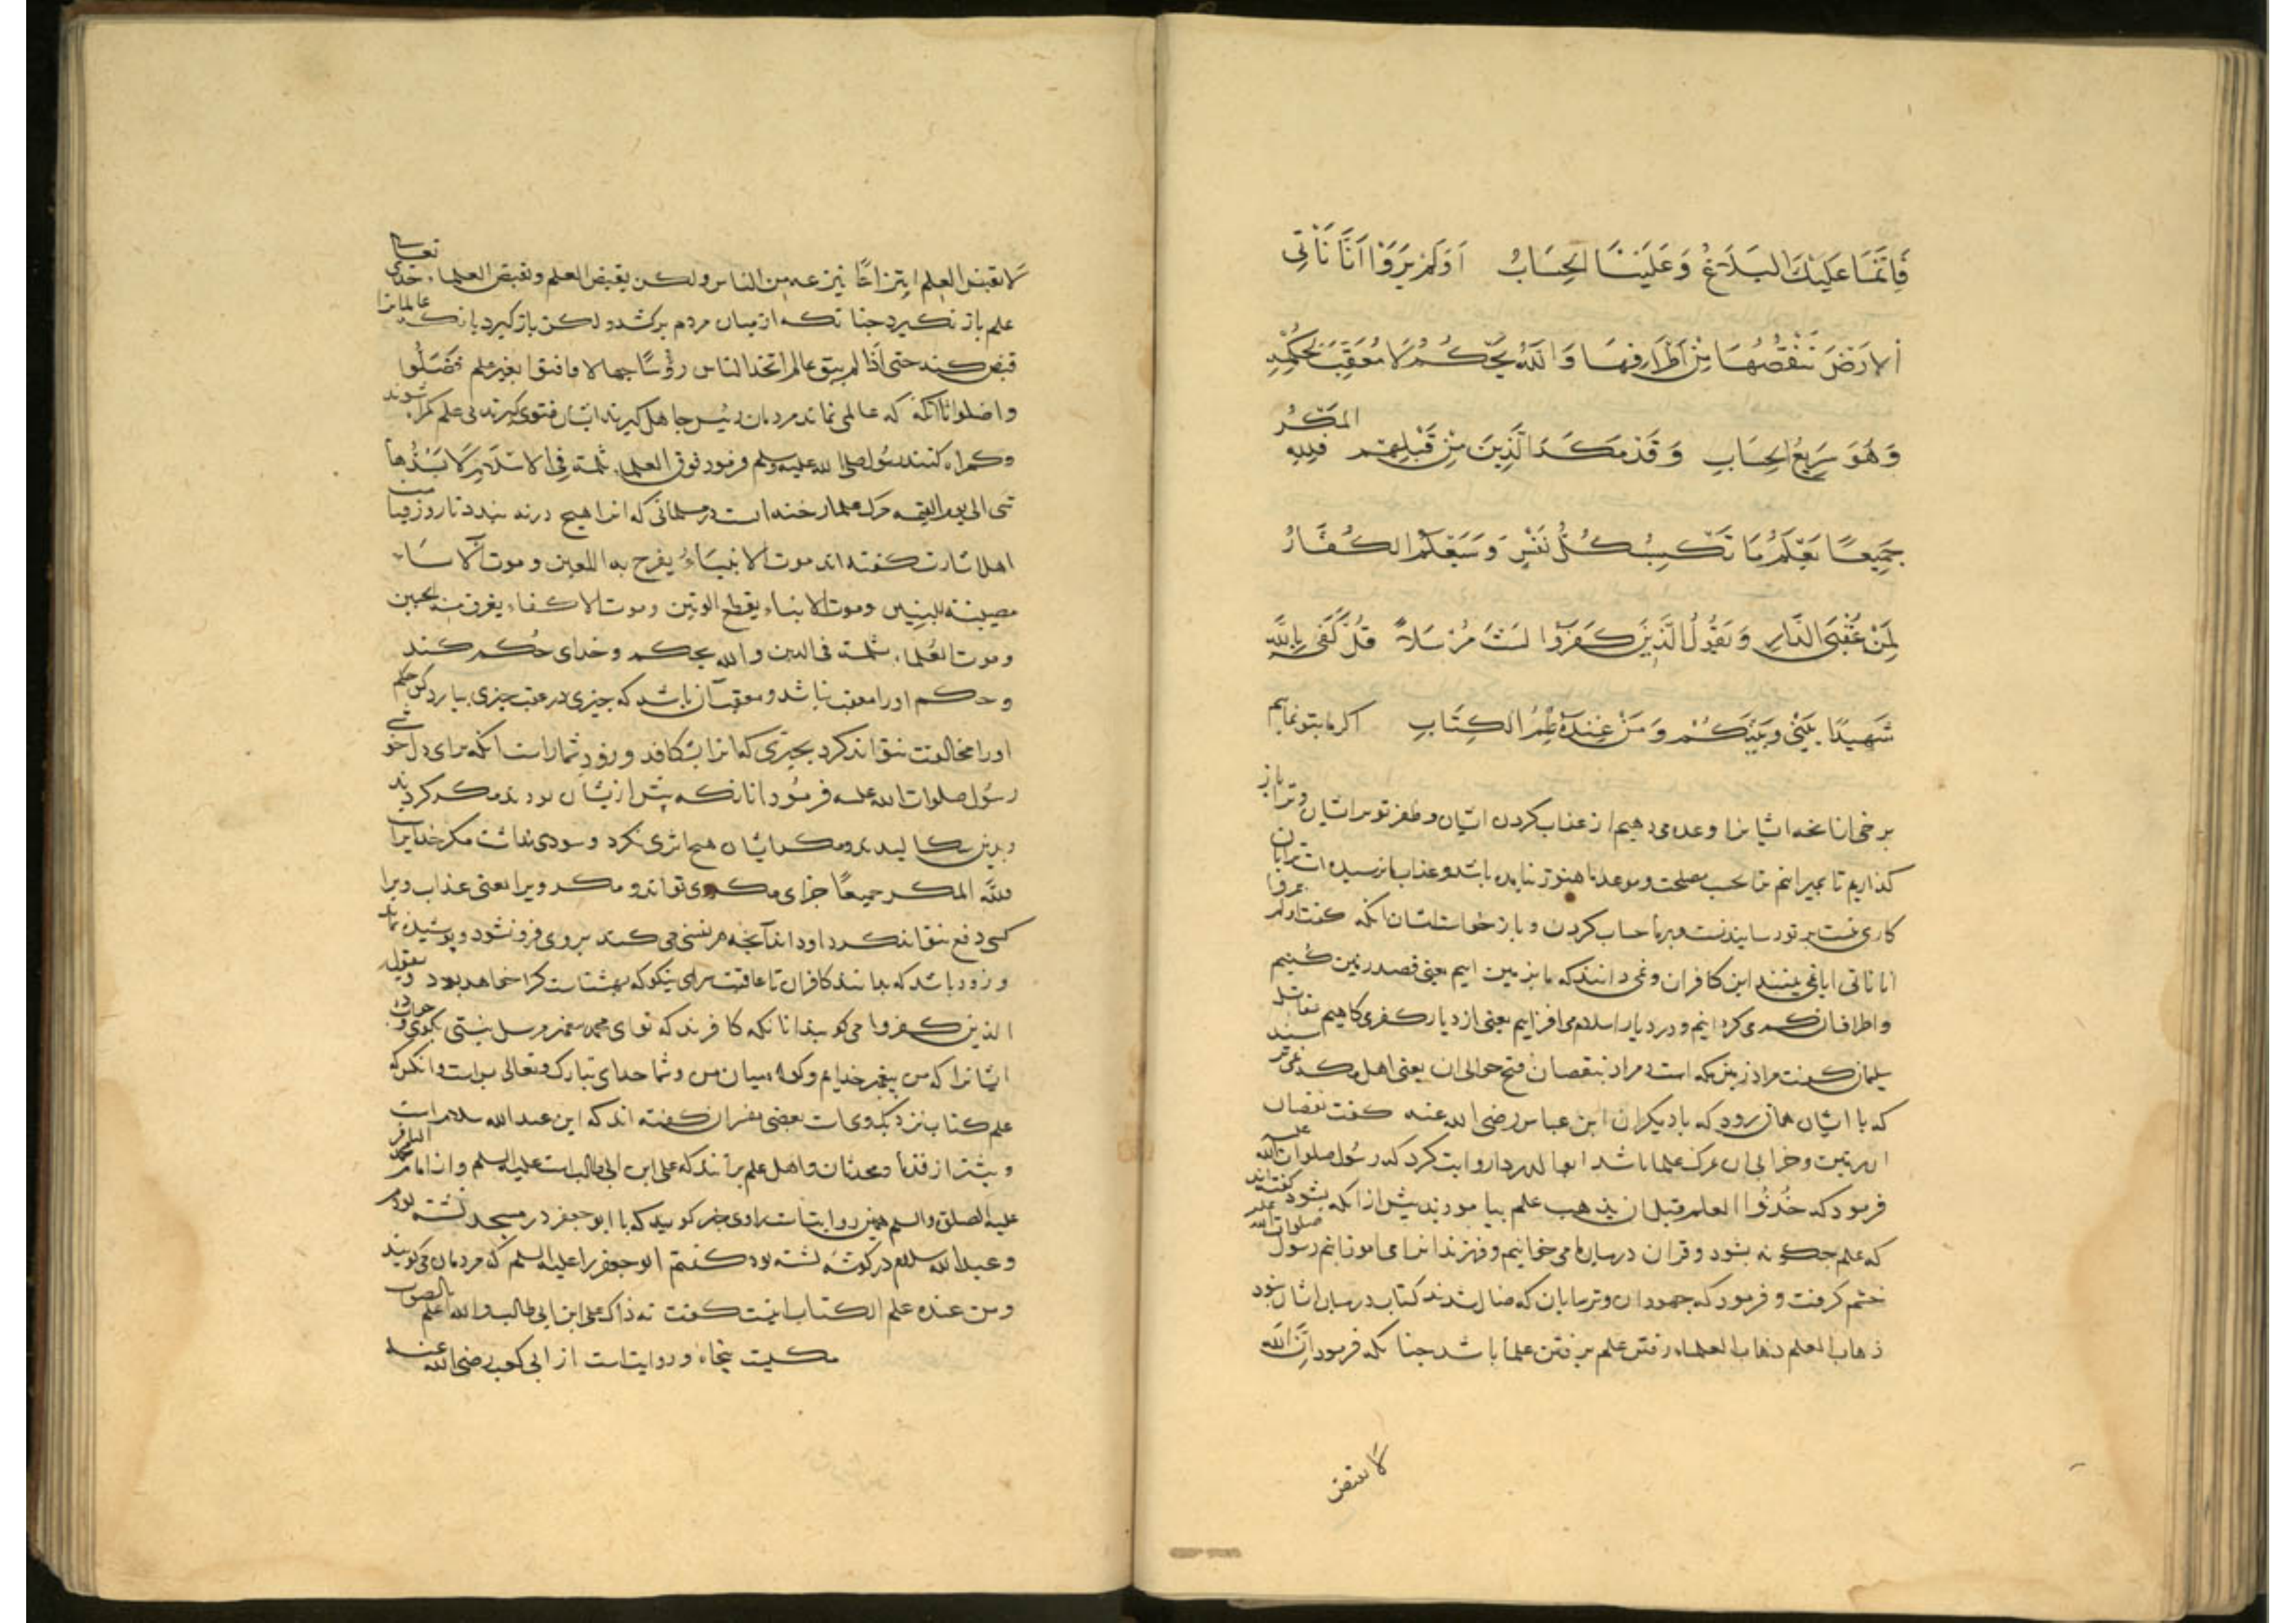 فَاِنَّمَا عَلَيْكَ البَلَاغُ وَعَلَيْنَا الحِسَابُ اَوَلَمْ يَرَوْا اَنَّا نَأْتِي
الْاَرْضَ نَنْقُصُهَا مِنْ اَطْرَافِهَا وَاللّٰهُ يَحْكُمُ لَا مُعَقِّبَ لِحُكْمِهِ
وَهُوَ سَرِيعُ الحِسَابِ وَقَدْ مَكَرَ الَّذِينَ مِنْ قَبْلِهِمْ فَلِلّٰهِ المَكْرُ
جَمِيعًا يَعْلَمُ مَا تَكْسِبُ كُلُّ نَفْسٍ وَسَيَعْلَمُ الكُفَّارُ
لِمَنْ عُقْبَى الدَّارِ وَيَقُولُ الَّذِينَ كَفَرُوا لَسْتَ مُرْسَلاً قُلْ كَفَى بِاللّٰهِ
شَهِيدًا بَيْنِي وَبَيْنَكُمْ وَمَنْ عِنْدَهُ عِلْمُ الكِتَابِ اكر ما بتو نمايیم
برخی از انانچه ایشانرا وعده می دهیم از عذاب کردن ایشان وظفر تو بر ایشان
کذاریم تا بمیرانیم حسب مصلحت وموعد ما هنوز نیامده باشد وعذاب
کاری نیست بر تو رسانیدنست وبر ما حساب کردن وباز خواست ایشان انکه کفت اولم یروا
انا ناتی ایا نمی بینند این کافران ونمی دانند که ما بزمین اییم یعنی قصد زمین کنیم
واطراف ان کم می کردانیم ودر دیار اسلام می افزاییم یعنی از دیار کفر می کاهیم مقاتل
سلیمان کفت مراد زمین مکه است ومراد بنقصان فتح حوالی ان یعنی اهل مکه نمی ترسند
که با ایشان همان رود که با دیکران ابن عباس رضی الله عنه کفت نقصان
زمین وخرابی ان بمرک علما باشد ابو الدردا روایت کرد که رسول صلوات الله علیه
فرمود که خُذُوا العلم قبل ان یذهب علم بیاموزید پیش از انکه بشود کفتند
که علم چکونه بشود وقران در میان ما می خوانیم وفرزندانرا می اموزانیم رسول صلوات الله علیه
خشم کرفت وفرمود که جهودان وترسایان که ضال شدند کتاب در میان ایشان نبود
ذهاب العلم ذهاب العلماء رفتن علم برفتن علما باشد چنانکه فرمود اِنَّ اللّٰه
لا یقبض
لا یقبض العلم انتزاعًا ینتزعه من الناس ولکن یقبض العلم وبقبض العلماء خدای تعالی
علم باز نکیرد چنانکه از میان مردم برکشد ولکن باز کیرد بانکه عالمانرا
قبض کند حتی اذا لم یبق عالم اتخذ الناس رؤسًا جهالا فافتوا بغیر علم فضلّوا
واضلوا تا انکه که عالمی نماند مردمان رئیس جاهل کیرند ایشان فتوی کنند بی علم کمراه شوند
وکمراه کنند رسول صلی الله علیه وسلم فرمود موت العلماء ثلمة فی الاسلام لا یسدّها
شی الی یوم القیمه مرک علما رخنه است در مسلمانی که انرا هیچ در نه بندد تا روز قیامت
اهل اشارت کفته اند موت الانبیاءُ یفرح به اللعین وموت الاساء
مصیبة للبنین وموت الابناء یقطع الوتین وموت الاکفاء یعرق منه الجبین
وموت العلماء ثلمة فی الدین والله یحکم وخدای حُکم کند
وحکم اورا معقب نباشد ومعقب آن باشد که چیزی در عقب چیزی بیارد کس حکم
اورا مخالفت نتواند کرد بچیزی که انرا بشکافد وزود شمارست انکه برای دل خوشی
رسُول صلوات الله علیه فرمُود انانکه پیش از ایشان بودند مکر کردند
وبدین سکالیدند ومکر ایشان هیچ اثری نکرد وسودی نداشت مکر خدایراست
فللّٰه المکر جمیعًا جزای مکر وی تواند ومکر ویرا یعنی عذاب ویرا
کسی دفع نتواند کرد او داند آنچه هر نفسی می کند بر وی فرو نشود وپوشیده نماند
وزود باشد که بدانند کافران تا عاقبت سرای نیکو که بهشتست کرا خواهد بود ویقول
الذین کفروا می کویند انانکه کافرند که تو ای محمد پیغمبر مرسل نیستی بکوی در جواب
ایشانرا که من پیغمبر خدایم وکواه میان من وشما خدای تبارک وتعالی بس است وانکس که
علم کتاب نزدیک وی است بعضی مفسران کفته اند که ابن عبد الله سلام است
وبیشتر از قدما ومحدثان واهل علم برانند که علی ابن ابی طالب است علیه السلم واز امام محمد الباقر
علیه الصلوة والسلم همین روایتست راوی خبر کوید که با ابو جعفر در مسجد نشسته بودم
وعبد الله سلام در کوشهٔ نشسته بود کفتم ابو جعفر را علیه السلم که مردمان می کویند
ومن عنده علم الکتاب اینست کفت نه ذاک علی ابن ابی طالب والله اعلم بالصواب
مکیست پنجاه وروایت است از ابی کعب رضی الله عنه